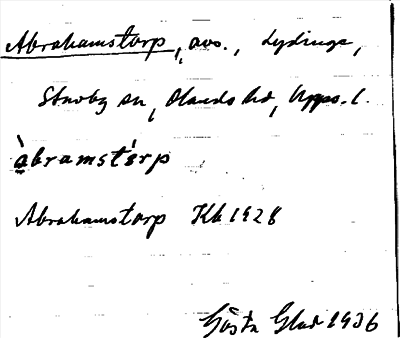 Abrahamstorp, avs., Lydinge,
Stavby sn, Olands hd, Upps. l.
àbramstòrp
Abrahamstorp Kbl 1928
Gösta Glad 1936